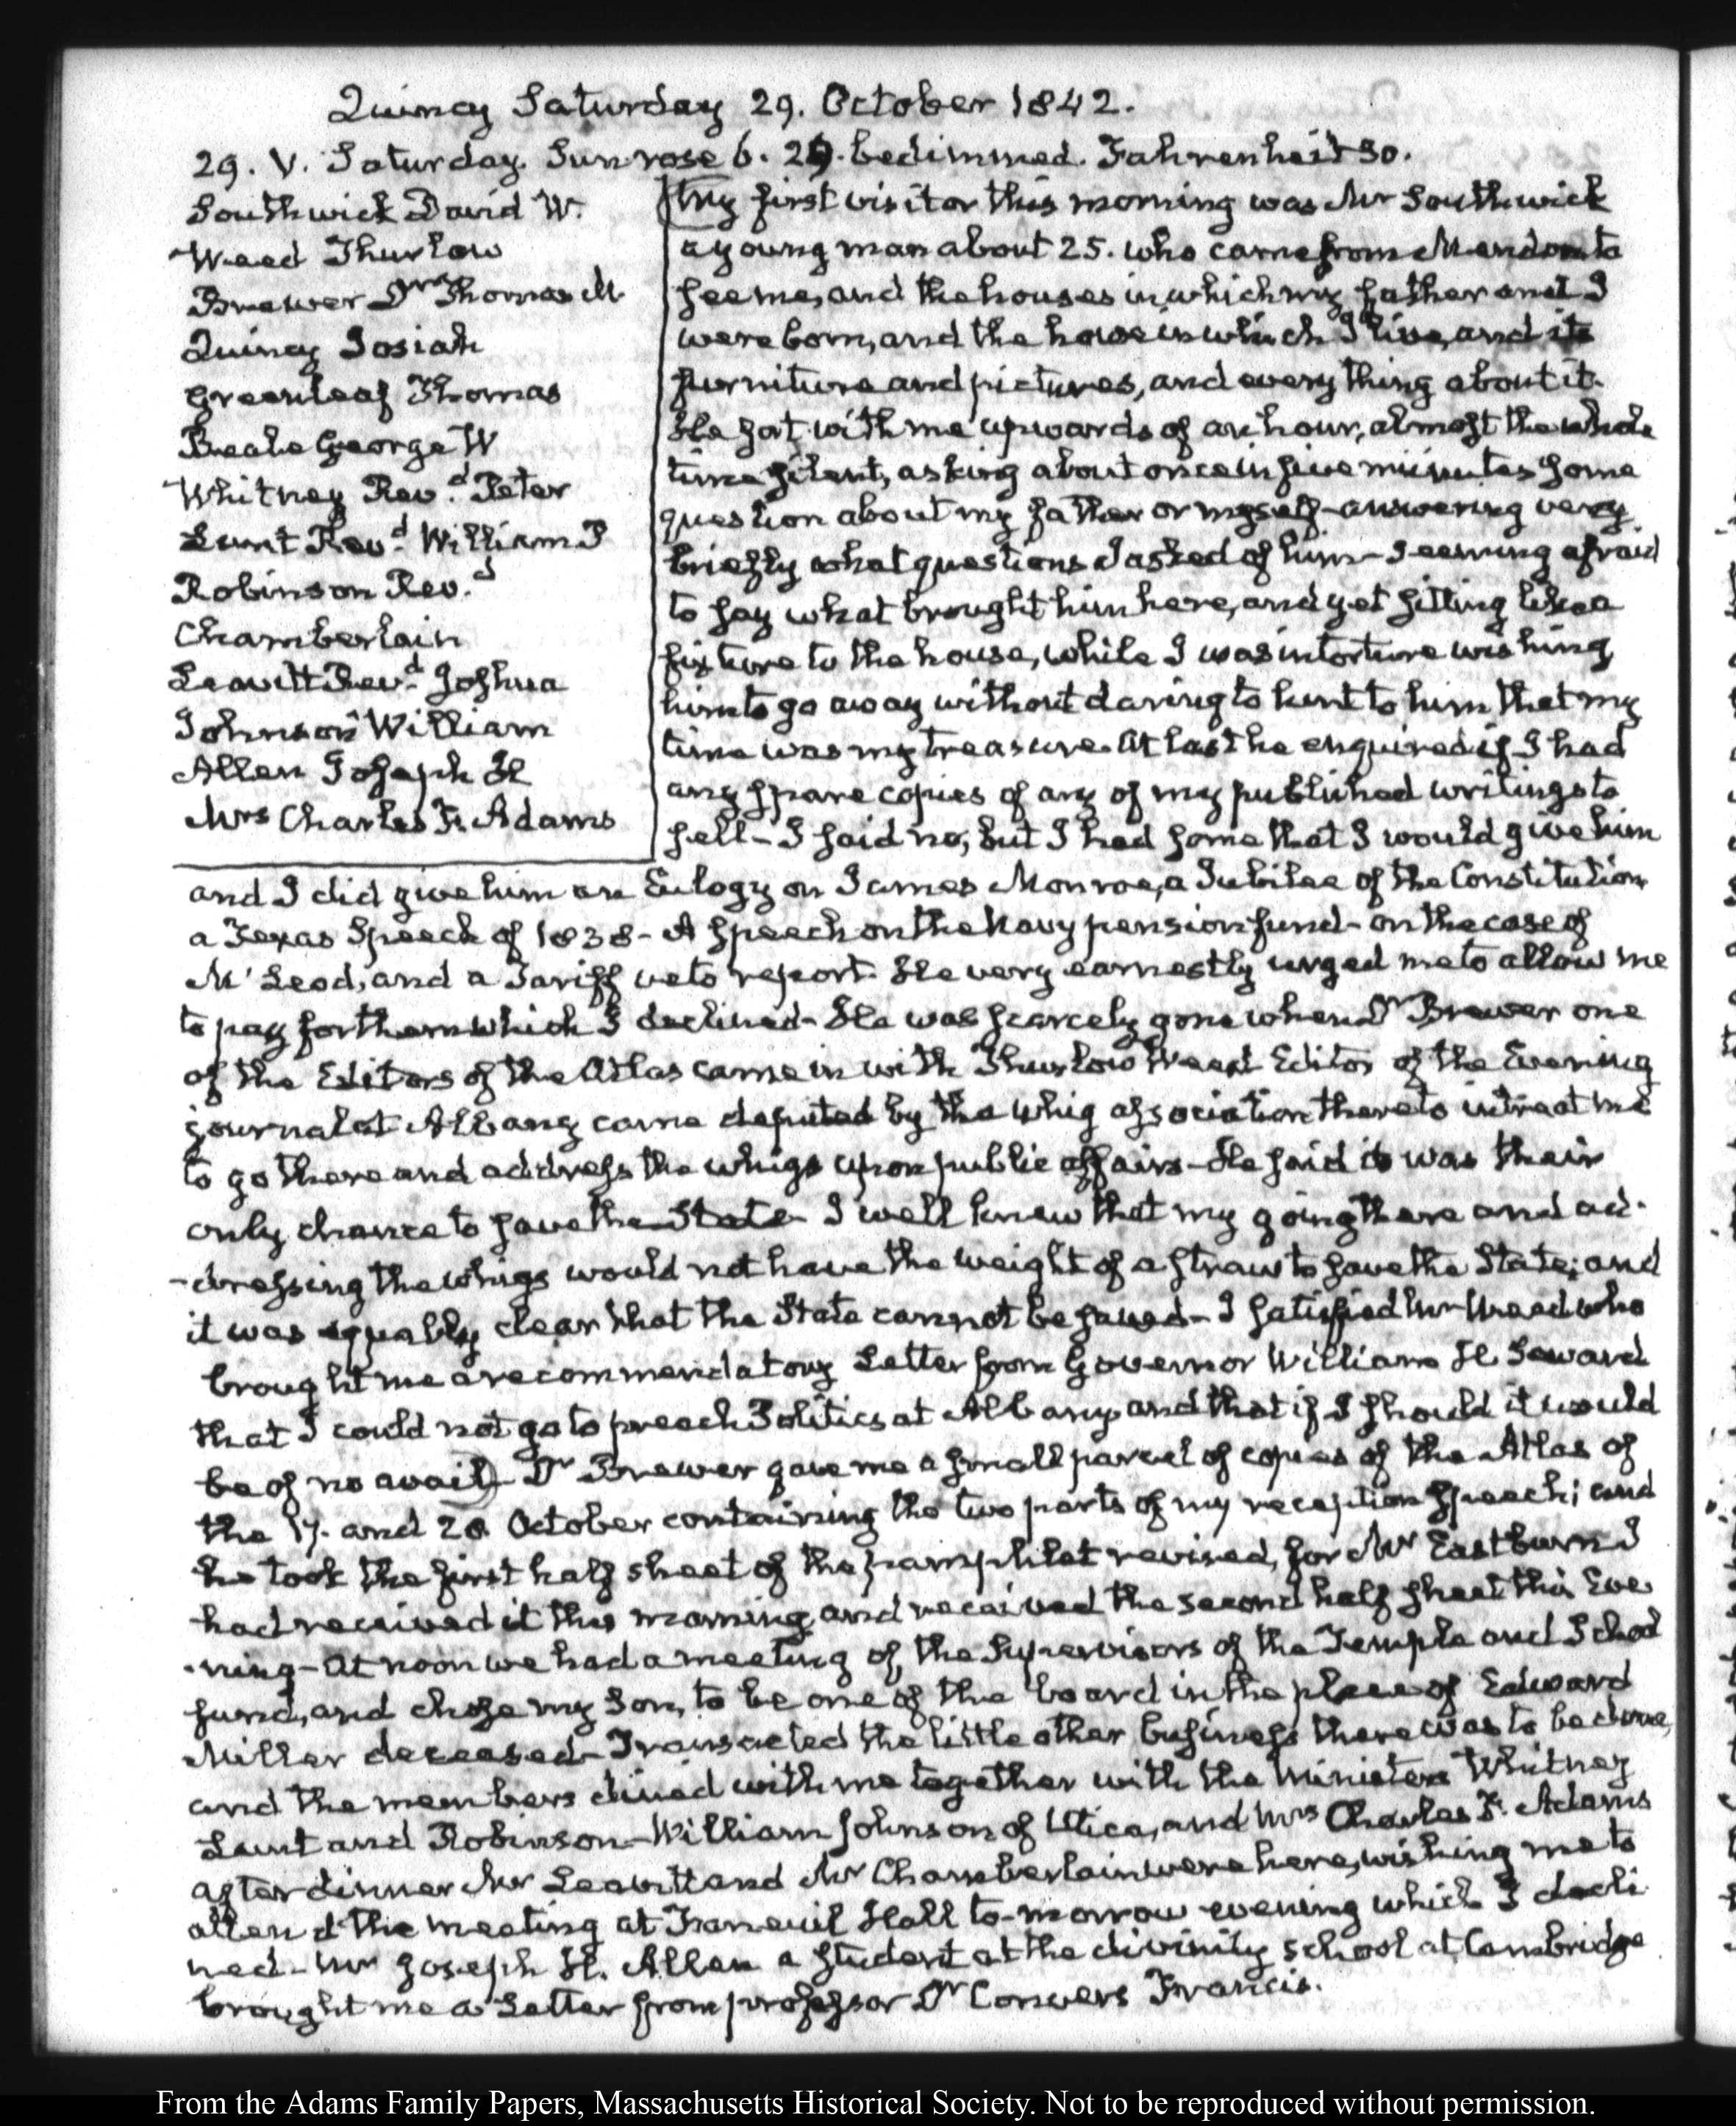 Quincy Saturday 29. October 1842.
29. V. Saturday. Sun rose 6. 29. bedimmed. Fahrenheit 30.
Southwick David W.
Weed Thurlow
Brewer Dr Thomas M
Quincy Josiah
Greenleaf Thomas
Beale George W
Whitney Revd. Peter
Lunt Revd. William P
Robinson Revd.
Chamberlain
Leavitt Revd. Joshua
Johnson William
Allen Joseph H
Mrs Charles F. Adams
My first visitor this morning was Mr Southwick
a young man about 25. who came from Mendon to
see me, and the houses in which my father and I
were born, and the house in which I live, and its
furniture and pictures, and every thing about it.
He sat with me upwards of an hour, almost the whole
time silent, asking about once in five minutes some
question about my father or myself—answering very
briefly what questions I asked of him—seeming afraid
to say what brought him here, and yet sitting like a
fixture to the house, while I was in torture wishing
him to go away without daring to hint to him that my
time was my treasure. At last he enquired if I had
any spare copies of any of my published writings to
sell—I said no, but I had some that I would give him
and I did give him an Eulogy on James Monroe, a Jubilee of the Constitution
a Texas Speech of 1838—A speech on the Navy pension fund—on the case of
McLeod, and a Tariff veto report. He very earnestly urged me to allow me
to pay for them which I declined—He was scarcely gone when Dr Brewer one
of the Editors of the Atlas came in with Thurlow Weed Editor of the Evening
journal at Albany came deputed by the whig association there to intreat me
to go there and address the whigs upon public affairs—He said it was their
only chance to save the State. I well knew that my going there and ad-
-dressing the whigs would not have the weight of a straw to save the State; and
it was equally clear that the State cannot be saved—I satisfied Mr Weed who
brought me a recommendatory Letter from Governor William H. Seward
that I could not go to preach Politics at Albany, and that if I should it would
be of no avail) Dr Brewer gave me a small parcel of copies of the Atlas of
the 17. and 20. October containing the two parts of my reception speech; and
he took the first half sheet of the pamphlet revised, for Mr Eastburn I
had received it this morning, and received the second half sheet this Eve
-ning—At noon we had a meeting of the Supervisors of the Temple and School
fund, and chose my Son, to be one of the board in the place of Edward
Miller deceased—Transacted the little other business there was to be done,
and the members dined with me together with the Ministers Whitney
Lunt and Robinson—William Johnson of Utica, and Mrs Charles F. Adams
after dinner Mr Leavitt and Mr Chamberlain were here, wishing me to
attend the meeting at Faneuil Hall to-morrow evening which I decli
ned—Mr Joseph H. Allen a student at the divinity school at Cambridge
brought me a Letter from professor Dr Convers Francis.
From the Adams Family Papers, Massachusetts Historical Society. Not to be reproduced without permission.